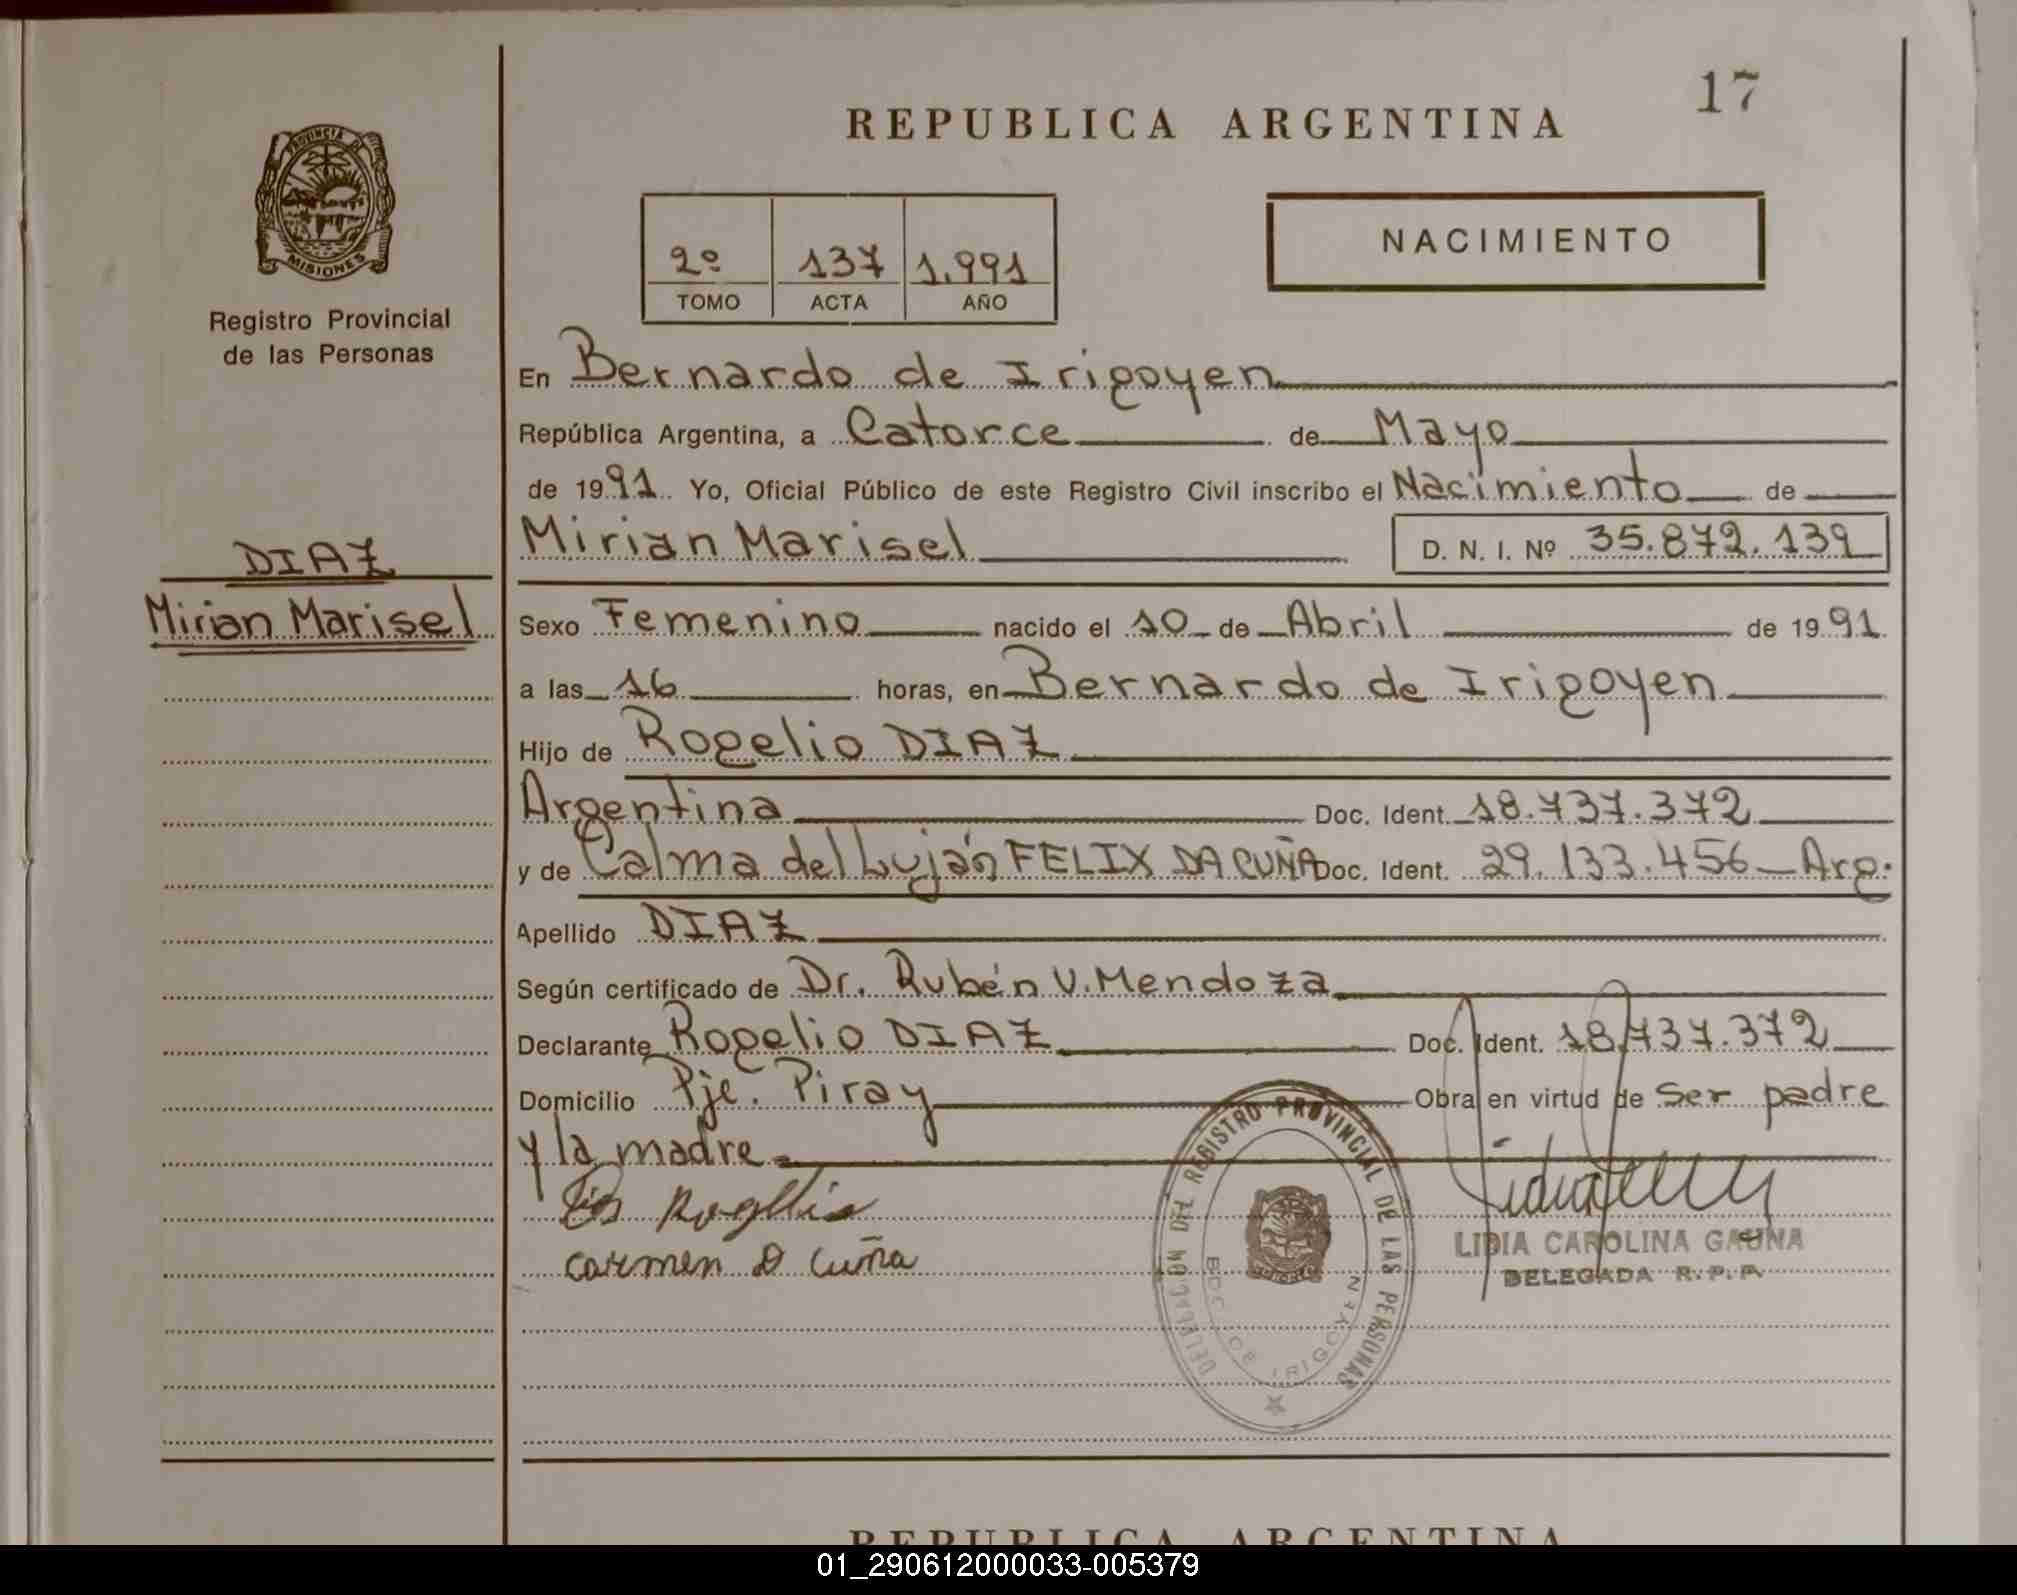 17
REPUBLICA ARGENTINA
PROVINCIA DE
MISIONES
Registro Provincial
de las Personas
2º 137 1.991
TOMO ACTA AÑO
NACIMIENTO
En Bernardo de Irigoyen
República Argentina, a Catorce de Mayo
de 1991 Yo, Oficial Público de este Registro Civil inscribo el Nacimiento de
DIAZ
Mirian Marisel
Mirian Marisel D. N. I. Nº 35.872.139
Sexo Femenino nacido el 10 de Abril de 1991
a las 16 horas, en Bernardo de Irigoyen
Hijo de Rogelio DIAZ
Argentina Doc. Ident. 18.737.372
y de Calma del Luján FELIX DA CUÑA Doc. Ident. 29.133.456 Arg.
Apellido DIAZ
Según certificado de Dr. Rubén V. Mendoza
Declarante Rogelio DIAZ Doc. Ident. 18.737.372
Domicilio Pje. Piray Obra en virtud de ser padre
y la madre
Rogelio
carmen D Cuña
LIDIA CAROLINA GAUNA
DELEGADA R. P. P.
DELEGACION DEL REGISTRO PROVINCIAL DE LAS PERSONAS
BDO. DE IRIGOYEN
REPUBLICA ARGENTINA
01_290612000033-005379